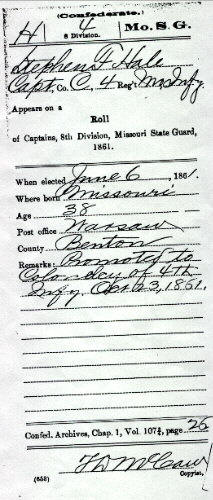 (Confederate.)
H 4 Mo. S. G.
8 Division.
Stephen F Hale
Capt. Co. C, 4 Reg't Mo Inf'y.
Appears on a
Roll
of Captains, 8th Division, Missouri State Guard,
1861.
When elected June 6, 1861.
Where born Missouri
Age 38
Post office Warsaw
County Benton
Remarks: Promoted to
Colonelcy of 4th
Inf'y. Oct 23, 1861.
Confed. Archives, Chap. 1, Vol. 107½, page 26
(653) Copyist.